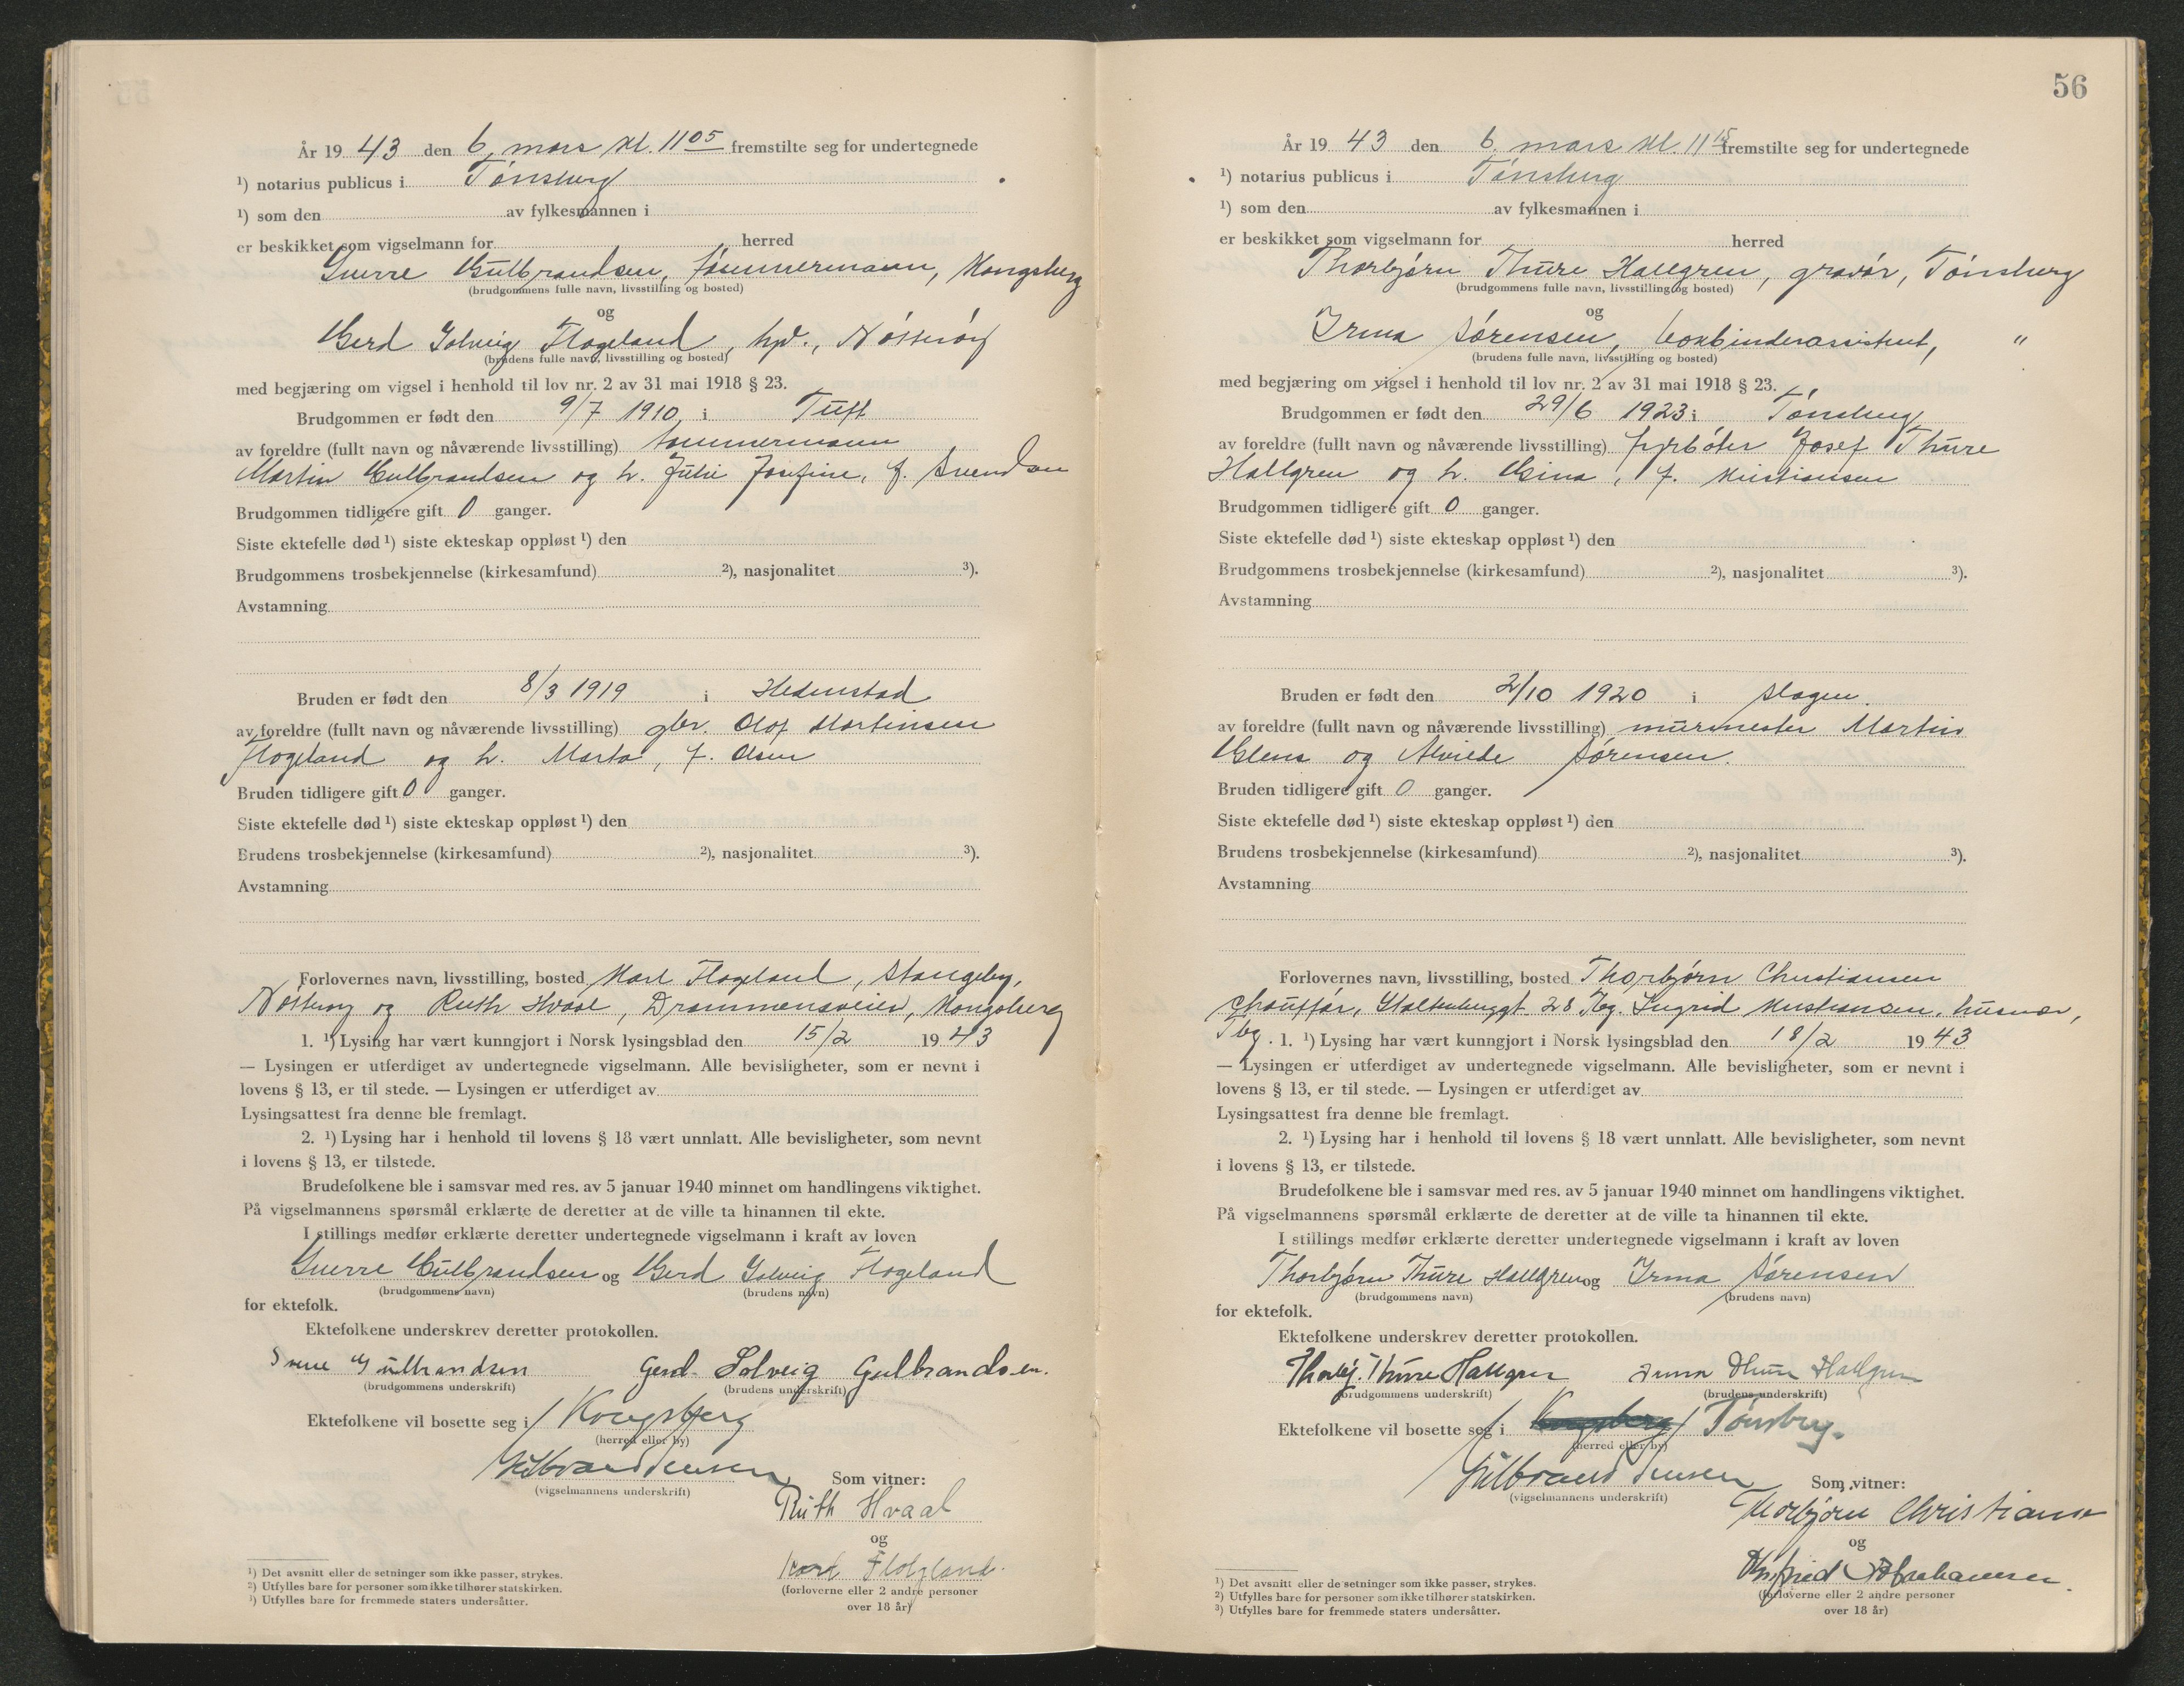 År 1943 den 6. mars kl. 11 05 fremstilte seg for undertegnede
¹) notarius publicus i Tønsberg
¹) som den av fylkesmannen i
er beskikket som vigselmann for herred
Sverre Gulbrandsen, tømmermann, Kongsberg
(brudgommens fulle navn, livsstilling og bosted)
og
Gerd Solveig Flogeland, hp., Nøtterøy
(brudens fulle navn, livsstilling og bosted)
med begjæring om vigsel i henhold til lov nr. 2 av 31 mai 1918 § 23.
Brudgommen er født den 9/7 1910 i Tuft
av foreldre (fullt navn og nåværende livsstilling) tømmermann
Martin Gulbrandsen og h. Julie Josefine, f. Svendsen
Brudgommen tidligere gift 0 ganger.
Siste ektefelle død ¹) siste ekteskap oppløst ¹) den
Brudgommens trosbekjennelse (kirkesamfund) ²), nasjonalitet ³).
Avstamning
Bruden er født den 8/3 1919 i Hedenstad
av foreldre (fullt navn og nåværende livsstilling) gbr. Olof Martinsen
Flogeland og h. Marta, f. Olsen
Bruden tidligere gift 0 ganger.
Siste ektefelle død ¹) siste ekteskap oppløst ¹) den
Brudens trosbekjennelse (kirkesamfund) ²), nasjonalitet ³).
Avstamning
Forlovernes navn, livsstilling, bosted Karl Flogeland, Stangeby,
Nøtterøy og Ruth Hvaal, Drammensveien, Kongsberg
1. ¹) Lysing har vært kunngjort i Norsk lysingsblad den 15/2 1943
— Lysingen er utferdiget av undertegnede vigselmann. Alle bevisligheter, som er nevnt i
lovens § 13, er til stede. — Lysingen er utferdiget av
Lysingsattest fra denne ble fremlagt.
2. ¹) Lysing har i henhold til lovens § 18 vært unnlatt. Alle bevisligheter, som nevnt
i lovens § 13, er tilstede.
Brudefolkene ble i samsvar med res. av 5 januar 1940 minnet om handlingens viktighet.
På vigselmannens spørsmål erklærte de deretter at de ville ta hinannen til ekte.
I stillings medfør erklærte deretter undertegnede vigselmann i kraft av loven
Sverre Gulbrandsen og Gerd Solveig Flogeland
(brudgommens navn) (brudens navn)
for ektefolk.
Ektefolkene underskrev deretter protokollen.
Sverre Gulbrandsen Gerd Solveig Gulbrandsen.
(brudgommens underskrift) (brudens underskrift)
Ektefolkene vil bosette seg i Kongsberg
(herred eller by)
(vigselmannens underskrift)
Som vitner:
Ruth Hvaal
og
Karl Flogeland.
(forloverne eller 2 andre personer
over 18 år)
¹) Det avsnitt eller de setninger som ikke passer, strykes.
²) Utfylles bare for personer som ikke tilhører statskirken.
³) Utfylles bare for fremmede staters undersåtter.
56
År 1943 den 6. mars kl. 11 15 fremstilte seg for undertegnede
¹) notarius publicus i Tønsberg
¹) som den av fylkesmannen i
er beskikket som vigselmann for herred
Thorbjørn Thure Hallgren, gravør, Tønsberg
(brudgommens fulle navn, livsstilling og bosted)
og
Irma Sørensen, bokbinderassistent, "
(brudens fulle navn, livsstilling og bosted)
med begjæring om vigsel i henhold til lov nr. 2 av 31 mai 1918 § 23.
Brudgommen er født den 29/6 1923 i Tønsberg
av foreldre (fullt navn og nåværende livsstilling) fyrbøter Josef Thure
Hallgren og h. Gina, f. Kristiansen
Brudgommen tidligere gift 0 ganger.
Siste ektefelle død ¹) siste ekteskap oppløst ¹) den
Brudgommens trosbekjennelse (kirkesamfund) ²), nasjonalitet ³).
Avstamning
Bruden er født den 2/10 1920 i Slagen.
av foreldre (fullt navn og nåværende livsstilling) murmester Martin
Glens og Alvilde Sørensen.
Bruden tidligere gift 0 ganger.
Siste ektefelle død ¹) siste ekteskap oppløst ¹) den
Brudens trosbekjennelse (kirkesamfund) ²), nasjonalitet ³).
Avstamning
Forlovernes navn, livsstilling, bosted Thorbjørn Christiansen
chauffør, Stoltenberggt. 28 Tbg. Ingrid Kristiansen, husmor,
Tbg. 1. ¹) Lysing har vært kunngjort i Norsk lysingsblad den 18/2 1943
— Lysingen er utferdiget av undertegnede vigselmann. Alle bevisligheter, som er nevnt i
lovens § 13, er til stede. — Lysingen er utferdiget av
Lysingsattest fra denne ble fremlagt.
2. ¹) Lysing har i henhold til lovens § 18 vært unnlatt. Alle bevisligheter, som nevnt
i lovens § 13, er tilstede.
Brudefolkene ble i samsvar med res. av 5 januar 1940 minnet om handlingens viktighet.
På vigselmannens spørsmål erklærte de deretter at de ville ta hinannen til ekte.
I stillings medfør erklærte deretter undertegnede vigselmann i kraft av loven
Thorbjørn Thure Hallgren og Irma Sørensen
(brudgommens navn) (brudens navn)
for ektefolk.
Ektefolkene underskrev deretter protokollen.
Thorbj. Thure Hallgren Irma Thure Hallgren
(brudgommens underskrift) (brudens underskrift)
Ektefolkene vil bosette seg i Kongsberg Tønsberg.
(herred eller by)
Gulbrand Jensen
(vigselmannens underskrift)
Som vitner:
Thorbjørn Christianse
og
(forloverne eller 2 andre personer
over 18 år)
¹) Det avsnitt eller de setninger som ikke passer, strykes.
²) Utfylles bare for personer som ikke tilhører statskirken.
³) Utfylles bare for fremmede staters undersåtter.